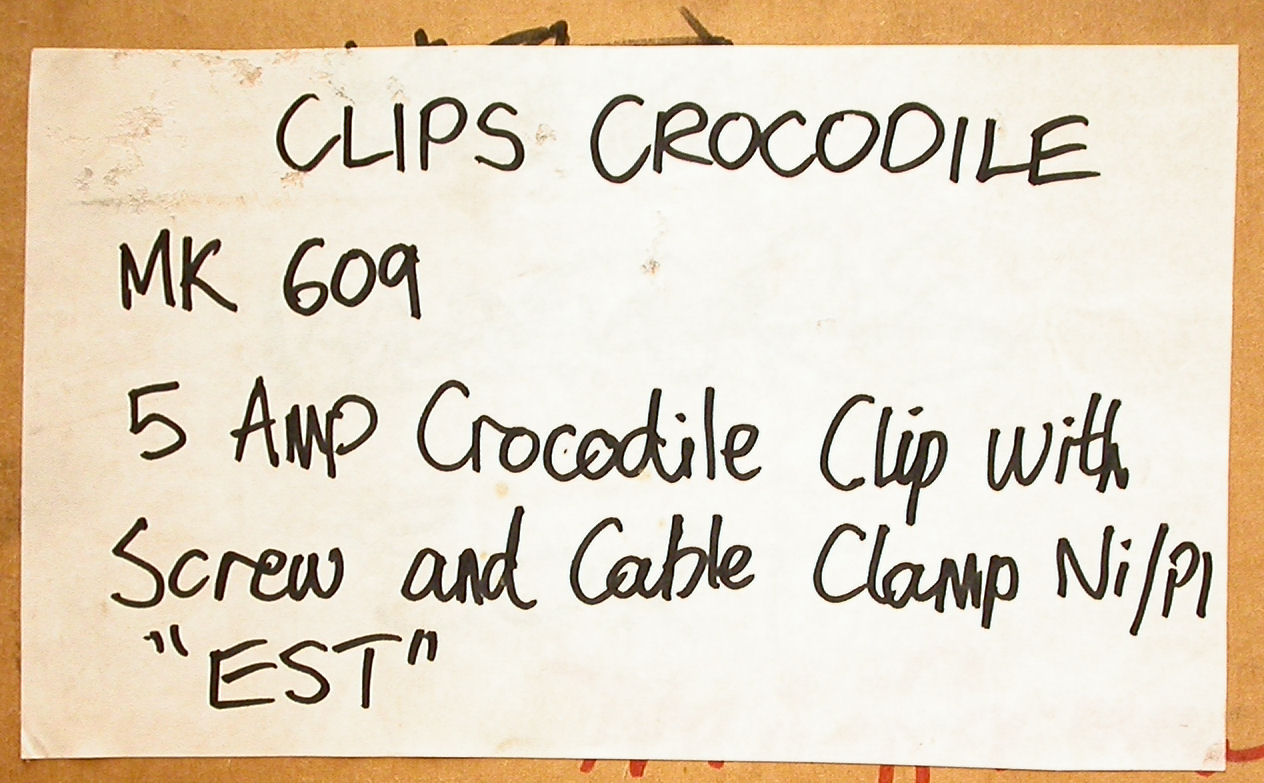 CLIPS CROCODILE
MK 609
5 Amp Crocodile Clip with
Screw and Cable Clamp Ni/Pl
"EST"